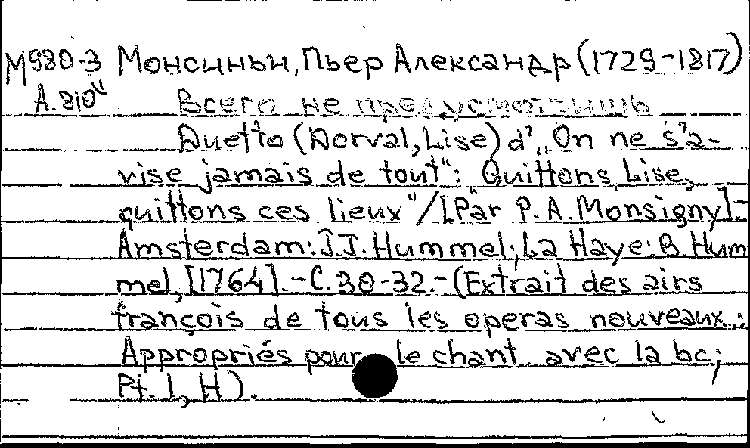 М980-3 Монсиньи, Пьер Александр (1729-1817)
А.810" Всего не предусмотришь
Duetto (Dorval, Lise) d' „On ne s'a-
vise jamais de tout": Quittons Lise,
quittons ces lieux"/[Par P.A. Monsigny].-
Amsterdam: J.J. Hummel; La Haye: B Hum
mel, [1764].-С.30-32.-(Extrait des airs
françois de tous les operas nouveaux..;
Appropriés pour le chant avec la bc;
Pt. I, H).